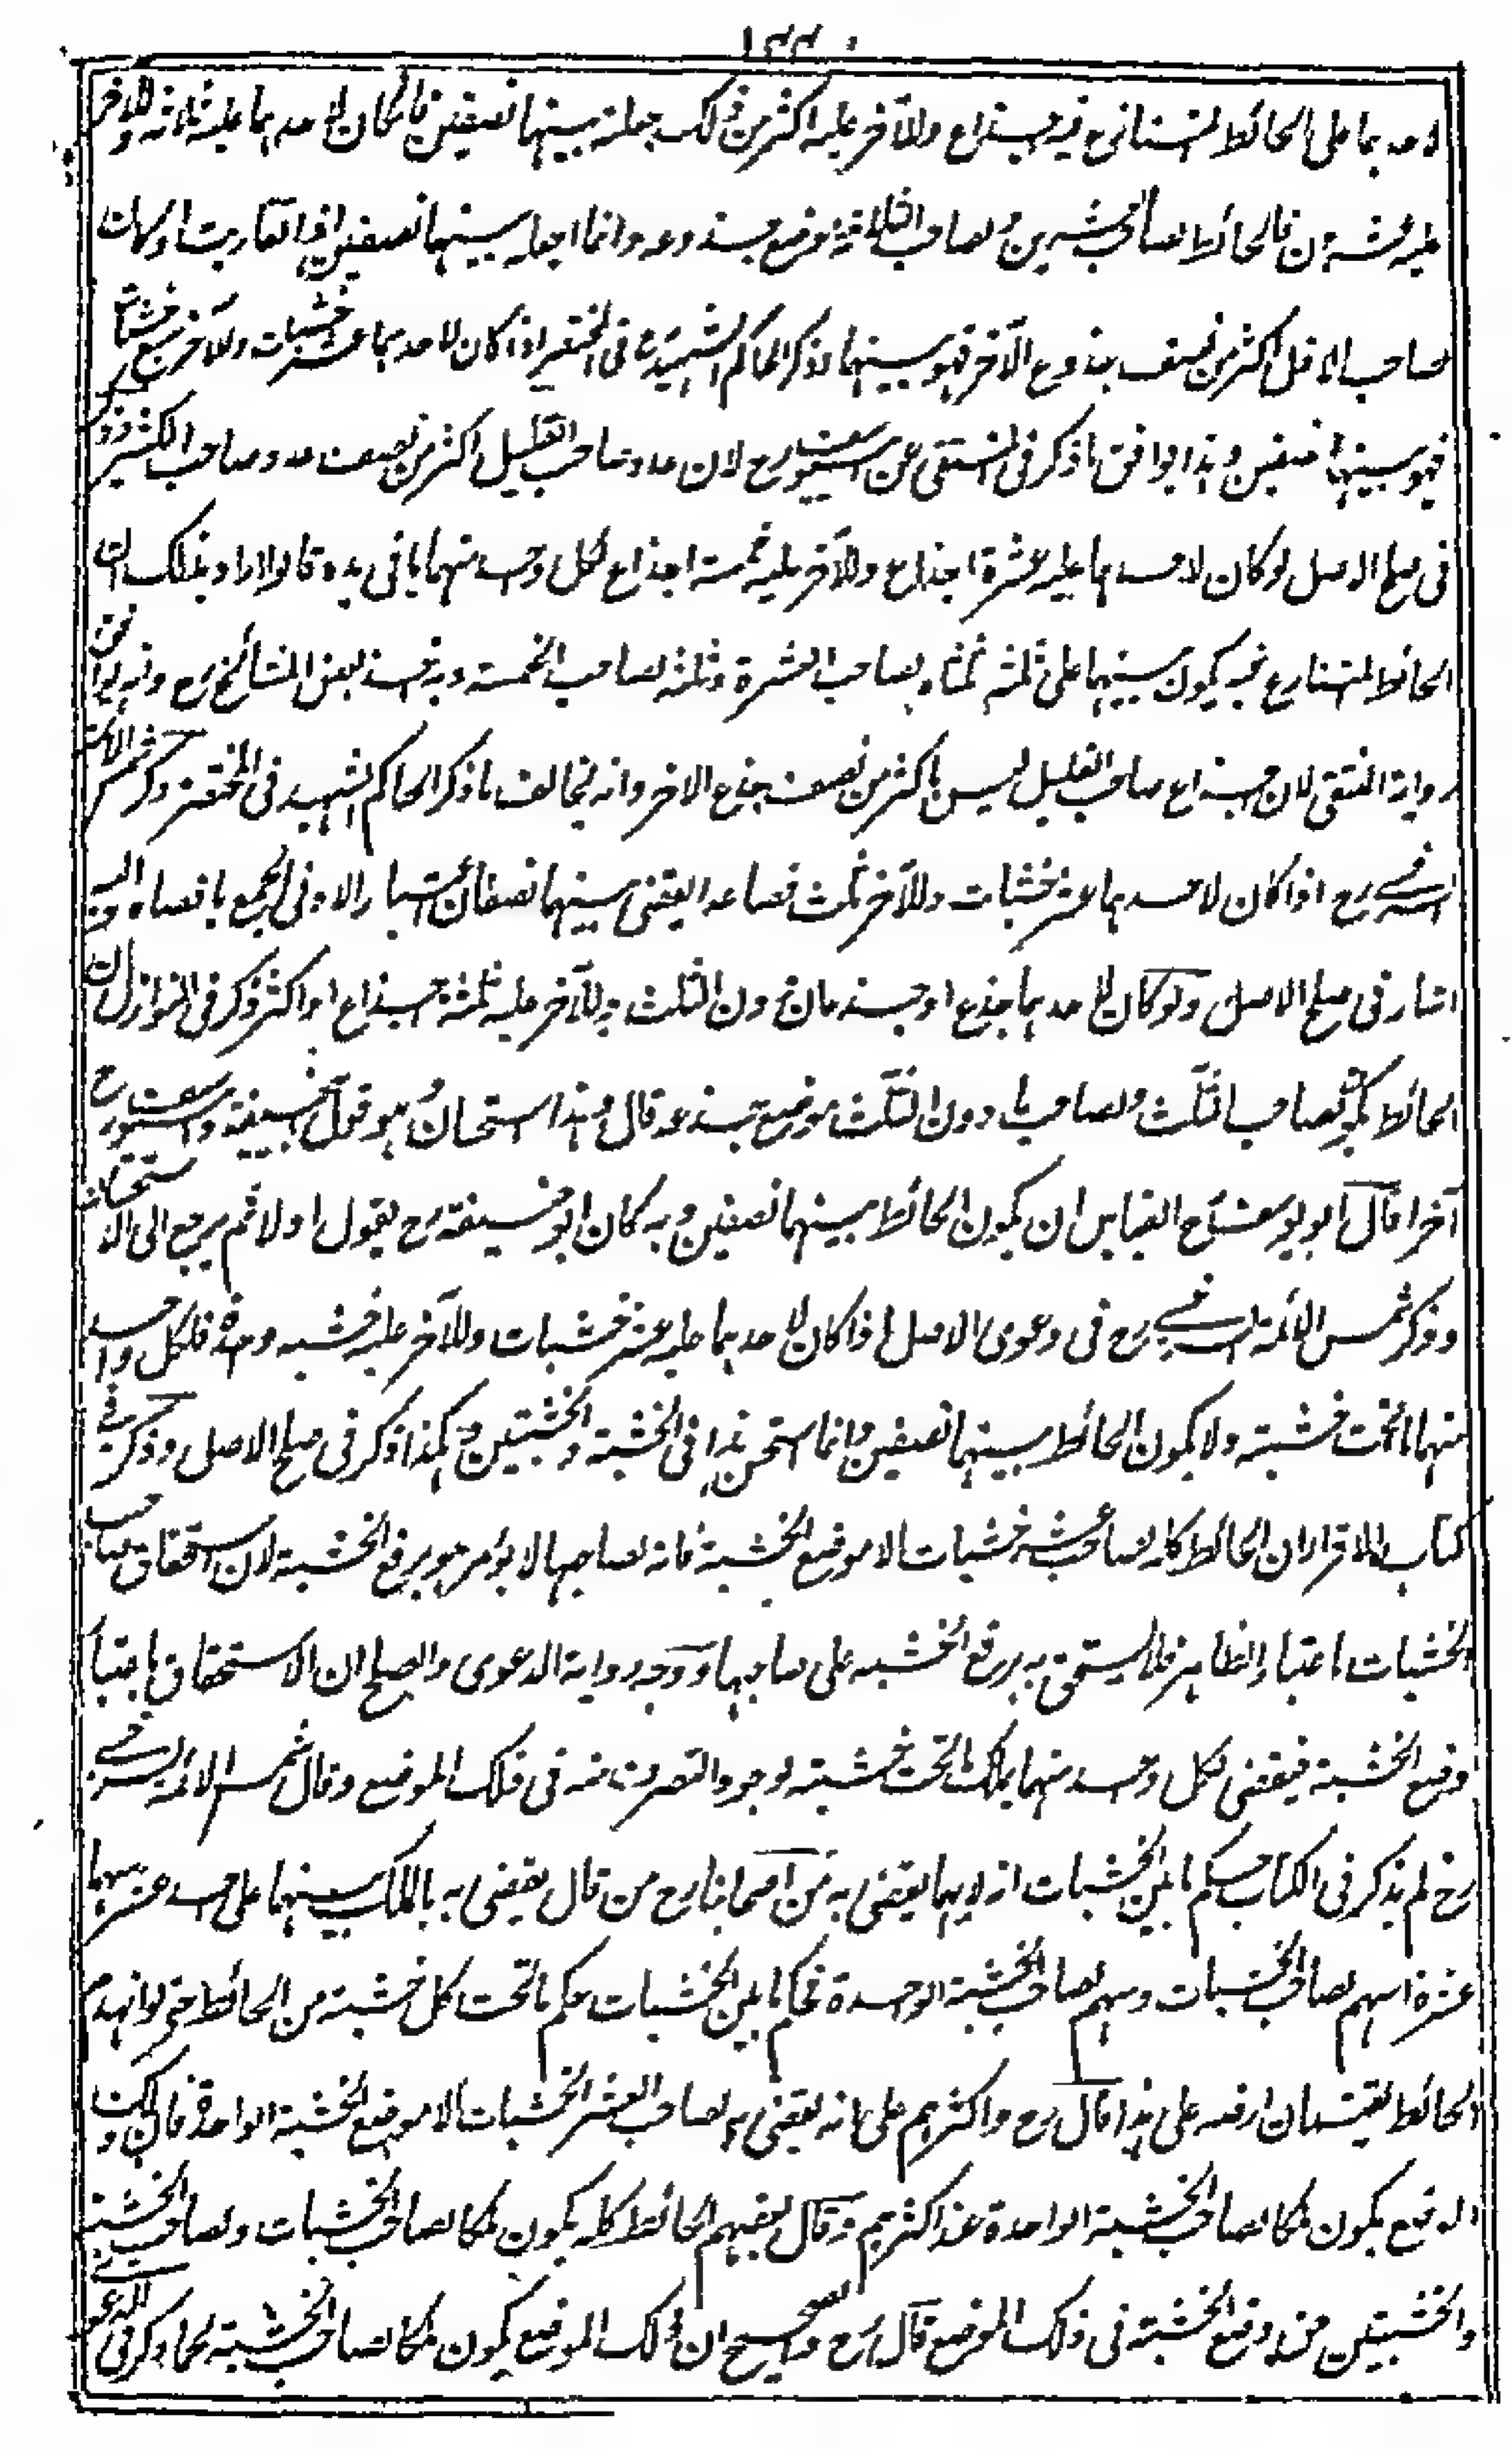 لاحدهما على الحائط المتنازع فيه جذاع وللآخر عليه اكثر من ذلك جعلته بينهما نصفين فان كان لاحدهما عليه ثلاثه وللآخر
عليه عشرون فالحائط لصاحب عشرين ولصاحب الثلاثة موضع جذوعه وانما اجعله بينهما نصفين اذا تقاربت او كان
لصاحب الاقل اكثر من نصف جذوع الآخر فهو بينهما وذكر الحاكم الشهيد رح فى المختصر اذا كان لاحدهما عشر خشبات وللآخر سبع خشبات
فهو بينهما نصفين وهذا يوافق ما ذكر فى المنتقى عن ابى يوسف رح لان عدد صاحب القليل اكثر من نصف عدد صاحب الكثير وذكر
فى صلح الاصل لو كان لاحدهما عليه عشرة اجذاع وللآخر عليه خمسة اجذاع لكل واحد منهما ما فى يده قالوا اراد بذلك ان
الحائط المتنازع فيه يكون بينهما على ثلثه ثلثاه لصاحب العشرة وثلثه لصاحب الخمسة وبه اخذ بعض المشائخ رح وانه يوافق
رواية المنتقى لان جذاع صاحب القليل ليس باكثر من نصف جذع الاخر وانه يخالف ما ذكر الحاكم الشهيد فى المختصر وذكر شمس الائمة
السرخسى رح اذا كان لاحدهما عشر خشبات وللآخر ثلث فصاعدا يقضى بينهما نصفان اعتبار الادنى الجمع باقصاه واليه
اشار فى صلح الاصل ولو كان لاحدهما جذع او جذعان دون الثلث وللآخر عليه ثلثة جذاع او اكثر ذكر فى النوازل ان
الحائط يكون لصاحب الثلث ولصاحب ما دون الثلث موضع جذعه قال وهذا استحسان وهو قول ابى حنيفة وابى يوسف رح
آخرا قال ابو يوسف رح القياس ان يكون الحائط بينهما نصفين وبه كان ابو حنيفة رح يقول اولا ثم رجع الى الاستحسان
وذكر شمس الائمة السرخسى رح فى دعوى الاصل اذا كان لاحدهما عليه عشر خشبات وللآخر عليه خشبه واحدة فلكل واحد
منهما ما تحت خشبته ولا يكون الحائط بينهما نصفين وانما استحسن هذا فى الخشبة والخشبتين وهكذا ذكر فى صلح الاصل وذكر فى
كتاب الاقرار ان الحائط كله لصاحب عشر خشبات الا موضع الخشبة فانه لصاحبها لا يؤمر هو برفع الخشبة لان استحقاق صاحب
الخشبات باعتبار الظاهر فلا يستحق به رفع الخشبه على صاحبها ووجه رواية الدعوى والصلح ان الاستحقاق باعتبار
وضع الخشبة فيقضى لكل واحد منهما بملك ما تحت خشبته لوجود التصرف منه فى ذلك الموضع وقال شمس الائمة السرخسى
رح لم يذكر فى الكتاب حكم ما بين الخشبات انه لايهما يقضى به فمن اصحابنا رح من قال يقضى به بالملك بينهما على احد عشر سهما
عشرة اسهم لصاحب الخشبات وسهم لصاحب الخشبة الواحدة فحكم ما بين الخشبات حكم ما تحت كل خشبة من الحائط حتى لو انهدم
الحائط يقتسمان ارضه على هذا قال رح واكثرهم على انه يقضى به لصاحب العشر الخشبات الا موضع الخشبة الواحدة فان ذلك
الموضع يكون ملكا لصاحب الخشبة الواحدة عند اكثرهم وقال بعضهم الحائط كله يكون ملكا لصاحب الخشبات ولصاحب الخشبة
والخشبتين حق وضع الخشبة فى ذلك الموضع قال رح والصحيح ان ذلك الموضع يكون ملكا لصاحب الخشبة كما ذكر فى الدعوى